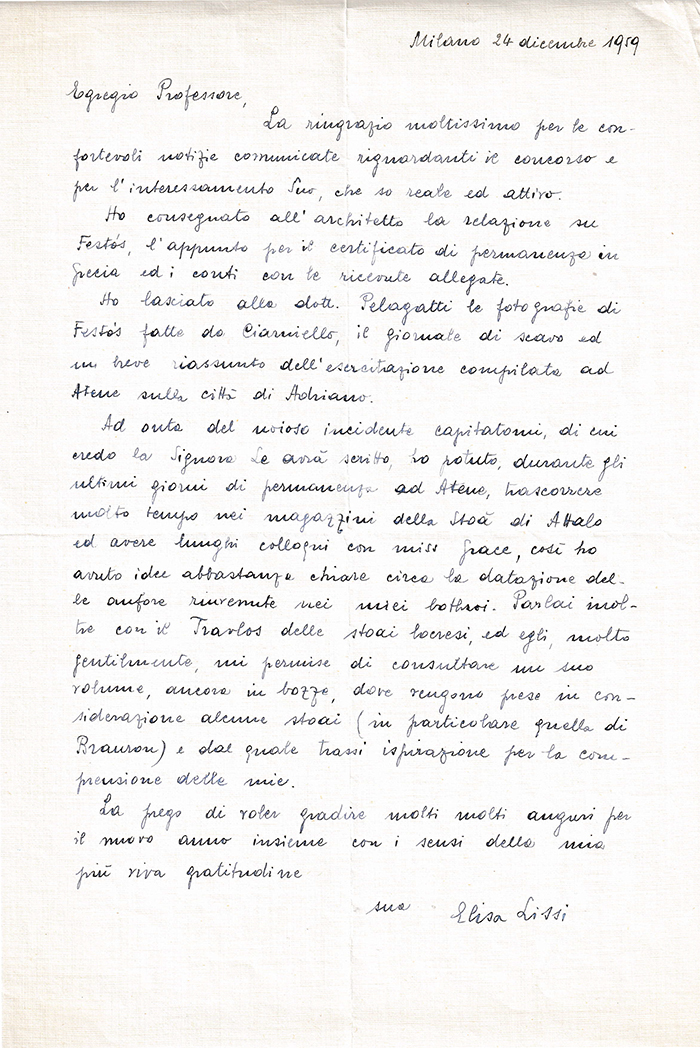 Milano 24 dicembre 1959
Egregio Professore,
La ringrazio moltissimo per le con-
fortevoli notizie comunicate riguardanti il concorso e
per l'interessamento Suo, che so reale ed attivo.
Ho consegnato all'architetto la relazione su
Festós, l'appunto per il certificato di permanenza in
Grecia ed i conti con le ricevute allegate.
Ho lasciato alla dott. Pelagatti le fotografie di
Festós fatte da Ciarniello, il giornale di scavo ed
un breve riassunto dell'esercitazione compilata ad
Atene sulla città di Adriano.
Ad onta del noioso incidente capitatomi, di cui
credo la Signora Le avrà scritto, ho potuto, durante gli
ultimi giorni di permanenza ad Atene, trascorrere
molto tempo nei magazzini della Stoà di Attalo
ed avere lunghi colloqui con miss Grace, così ho
avuto idee abbastanza chiare circa la datazione del-
le anfore rinvenute nei miei bothroi. Parlai inol-
tre con il Travlos delle stoai locresi, ed egli, molto
gentilmente, mi permise di consultare un suo
volume, ancora in bozze, dove vengono prese in con-
siderazione alcune stoai (in particolare quella di
Brauron) e dal quale trassi ispirazione per la com-
prensione delle mie.
La prego di voler gradire molti molti auguri per
il nuovo anno insieme con i sensi della mia
più viva gratitudine
sua Elisa Lissi